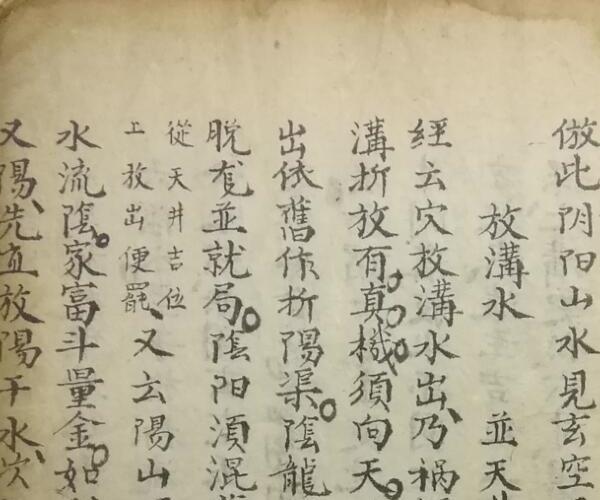 倣此阴阳山水見玄空
放溝水 並天井
經云穴放溝水出乃禍
溝折放有真機須向天
出依舊作折陽渠陰龍
脫龙並就局陰阳須混
從天井吉位
上放出便罷又云陽山
水流陰家富斗量金如
又陽先直放陽干水穴